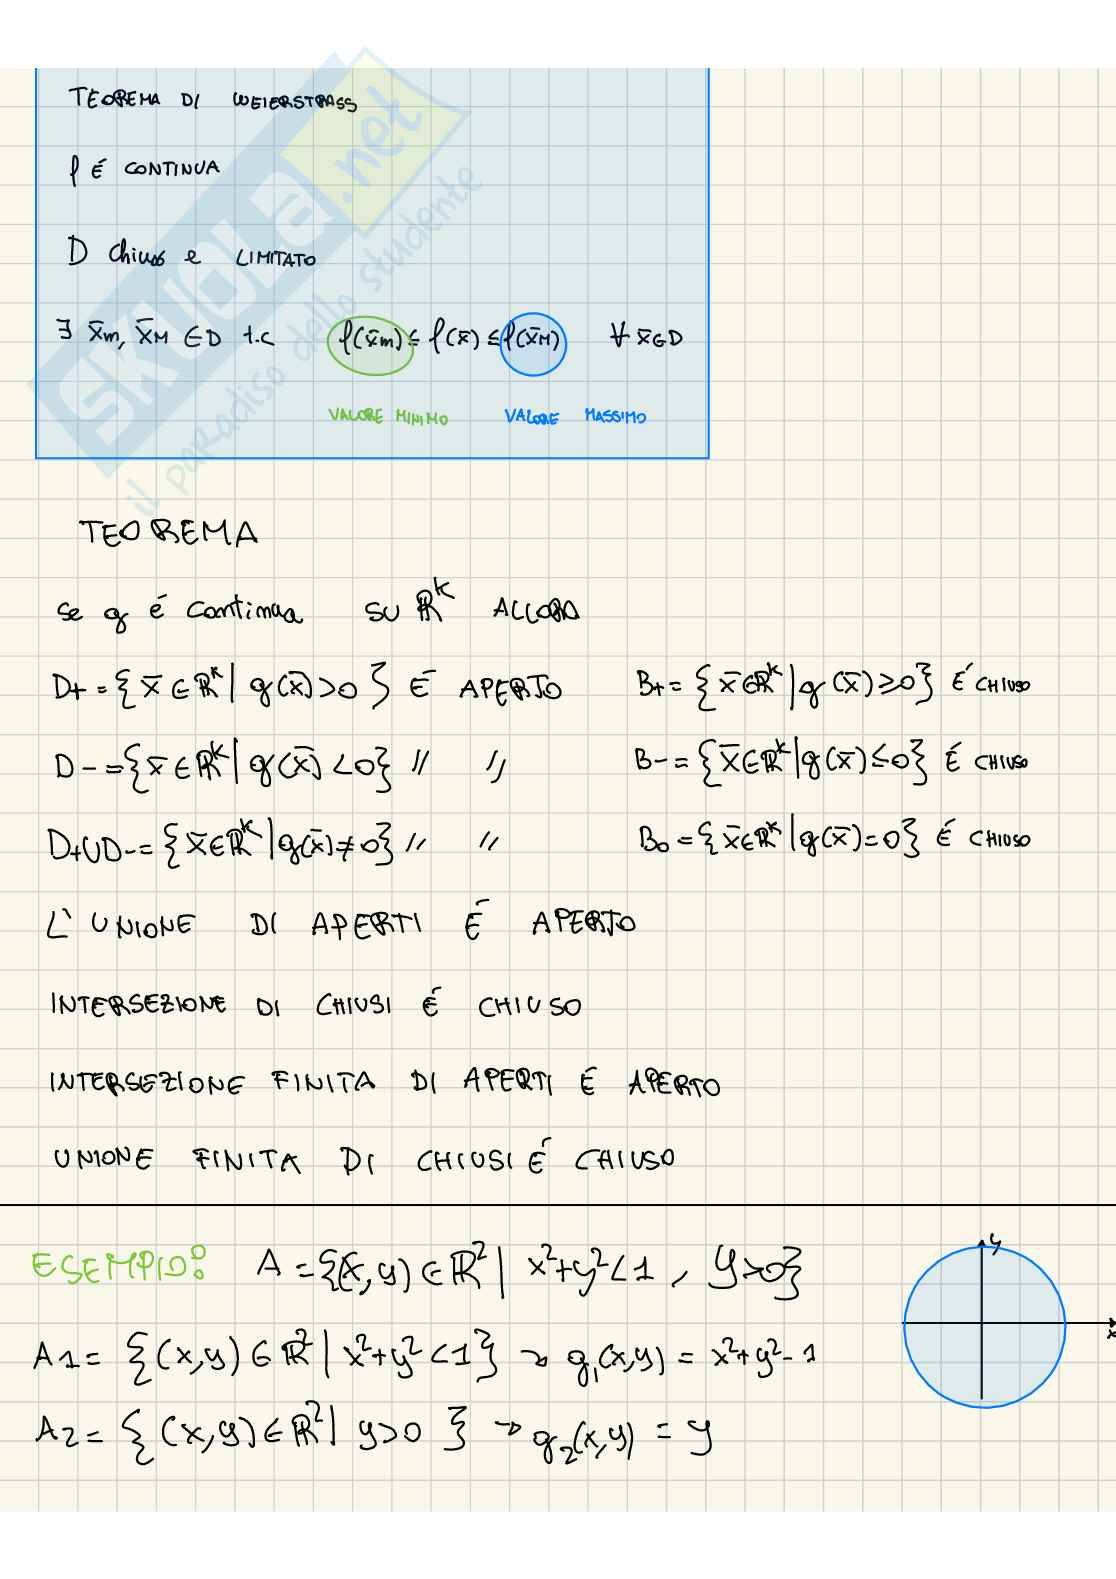 TEOREMA DI WEIERSTRASS
f É CONTINUA
D Chiuso e LIMITATO
∃ x̄m, x̄M ∈ D t.c f(x̄m) ≤ f(x̄) ≤ f(x̄M) ∀ x̄∈D
VALORE MINIMO VALORE MASSIMO
SKUOLA.net
il paradiso dello studente
TEOREMA
se g é continua SU ℝᵏ ALLORA
D+ = {x̄ ∈ ℝᵏ | g(x̄)>0} É APERTO B+ = {x̄∈ℝᵏ | g(x̄)≥0} É CHIUSO
D- = {x̄ ∈ ℝᵏ | g(x̄)<0} // // B- = {x̄∈ℝᵏ | g(x̄)≤0} É CHIUSO
D+UD- = {x̄∈ℝᵏ | g(x̄)≠0} // // B₀ = {x̄∈ℝᵏ | g(x̄)=0} É CHIUSO
L'UNIONE DI APERTI É APERTO
INTERSEZIONE DI CHIUSI É CHIUSO
INTERSEZIONE FINITA DI APERTI É APERTO
UNIONE FINITA DI CHIUSI É CHIUSO
ESEMPIO: A = {(x,y) ∈ ℝ² | x²+y²<1, y>0}
y
x
A1 = {(x,y) ∈ ℝ² | x²+y²<1} → g₁(x,y) = x²+y²-1
A2 = {(x,y) ∈ ℝ² | y>0} → g₂(x,y) = y